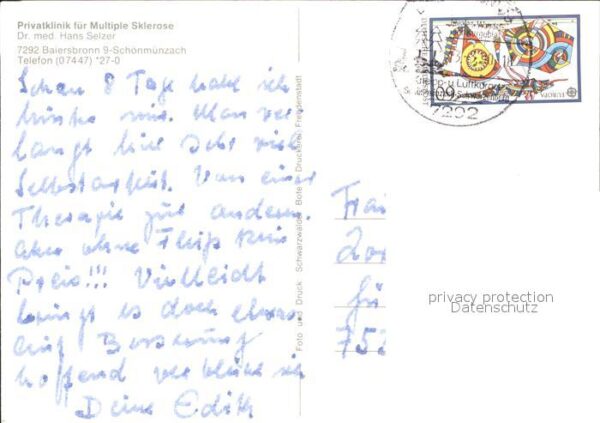 Privatklinik für Multiple Sklerose
Dr. med. Hans Selzer
7292 Baiersbronn 9-Schönmünzach
Telefon (07447) *27-0
Schon 8 Tage habe ich
hinter mir. Man ver
langt hier sehr viel
Selbstarbeit. Von einer
Therapie zur anderen.
Aber ohne Fleiß kein
Preis!!! Vielleicht
bringt es doch etwas
auf Besserung
hoffend verbleibe ich
Deine Edith
Foto und Druck Schwarzwälder Bote Druckerei Freudenstadt
7292
EUROPA
Frau
75
privacy protection
Datenschutz